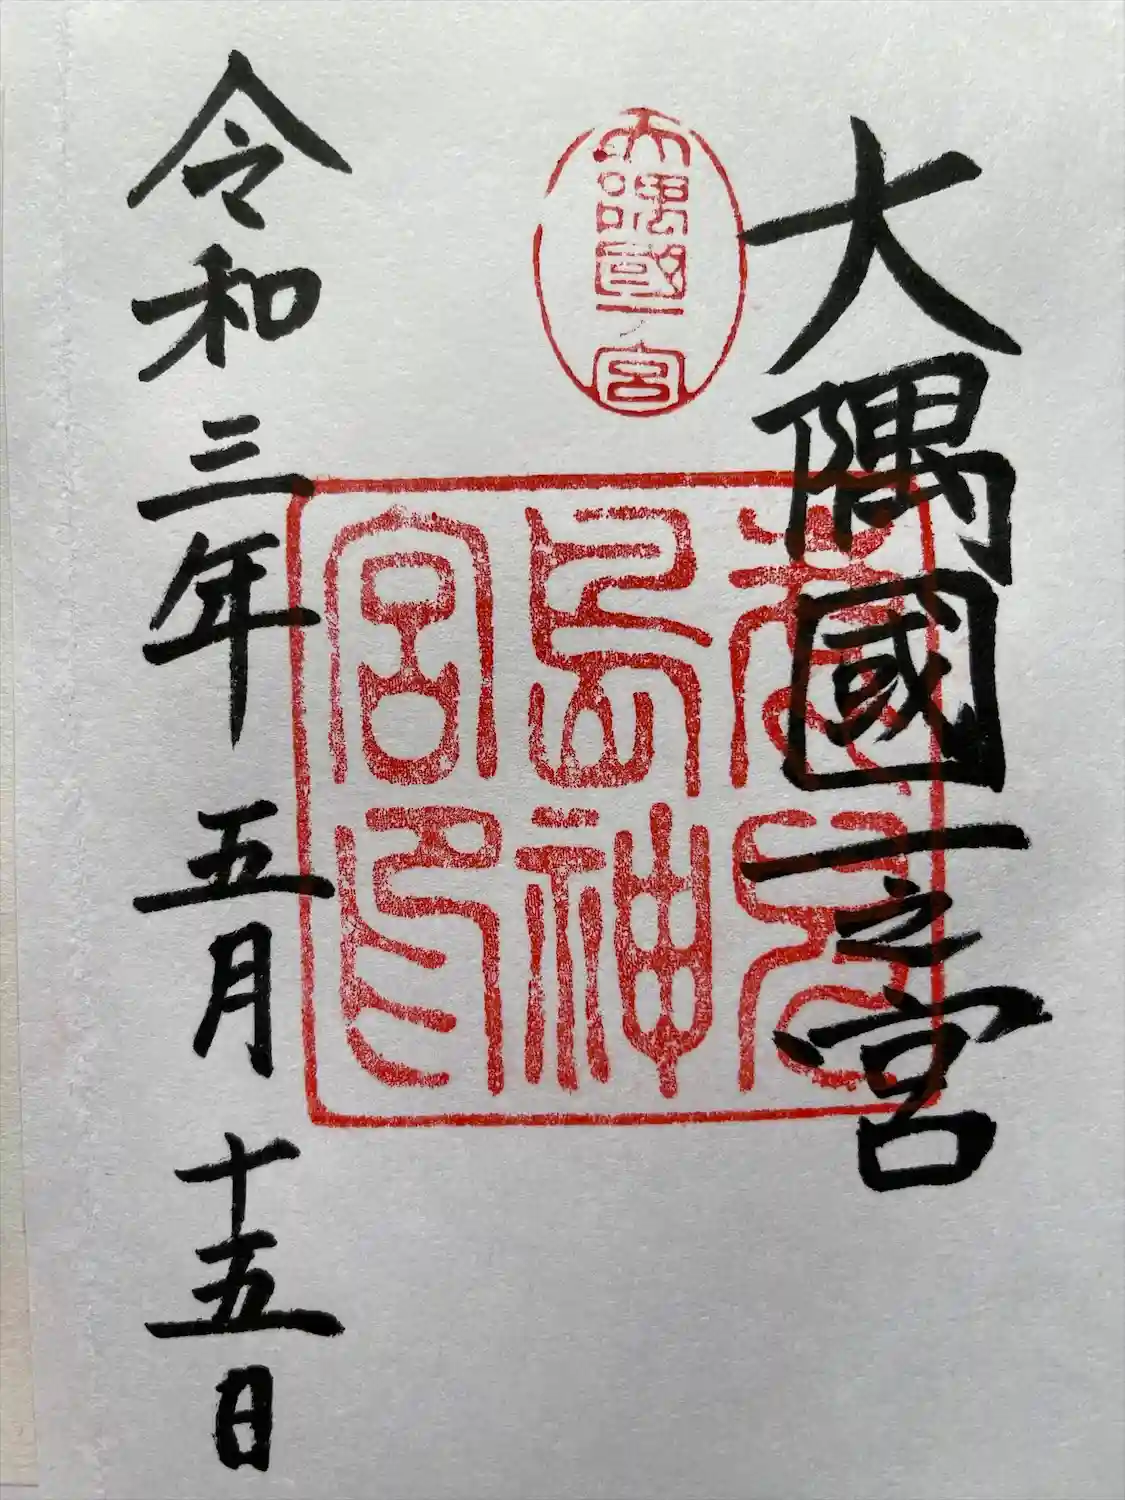 大隅國一之宮
大隅國一ノ宮
鹿兒
島神
宮印
令和三年五月十五日